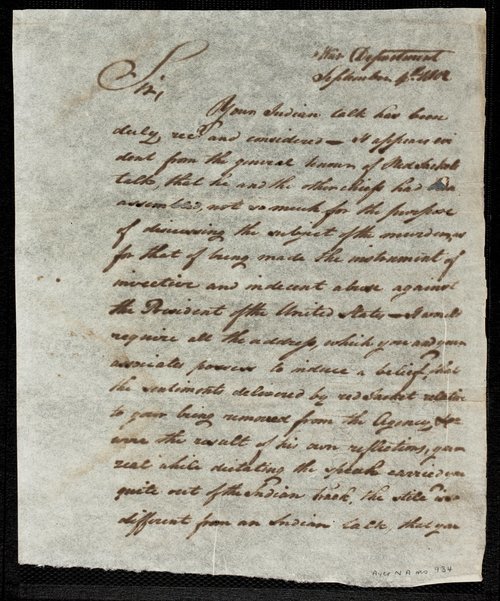 War Department
September 4th 1802
Sir,
Your Indian talk has been
duly recd and considered — It appears evi
dent from the general tenour of Red Jackets
talk, that he and the other chiefs had been
assembled, not so much for the purpose
of discussing the subject of the murder, as
for that of being made the instrument of
invective and indecent abuse against
the President of the United States — It would
require all the address, which you and your
associates possess to induce a belief, that
the sentiments delivered by red Jacket relative
to your being removed from the Agency, &c
were the result of his own reflections, your
zeal while dictating the speech carried you
quite out of the Indian track, the stile is so
different from an Indian talk, that you
Ayer N A MS 934